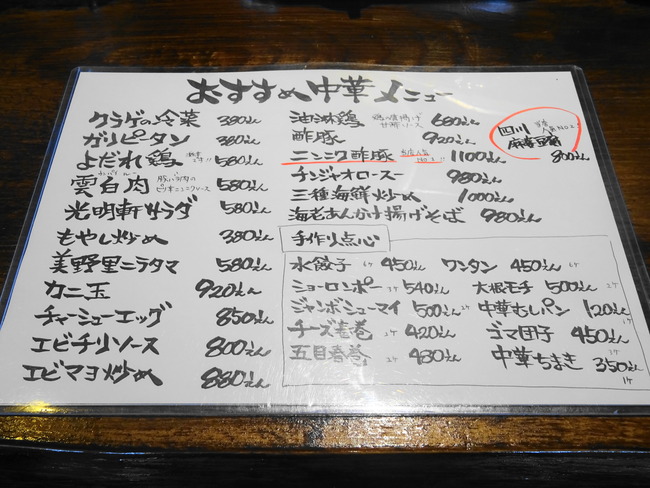 おすすめ中華メニュー
クラゲの冷菜 380えん
ガリピータン 380えん
よだれ鶏 580えん
雲白肉 豚バラ肉のピリ辛ニンニクソース 580えん
光明軒サラダ 580えん
もやし炒め 380えん
美野里ニラタマ 580えん
カニ玉 920えん
チャーシューエッグ 850えん
エビチリソース 800えん
エビマヨ炒め 880えん
油淋鶏 鶏の唐揚げ甘酢ソース 680えん
酢豚 920えん
ニンニク酢豚 当店人気No.1!! 1100えん
チンジャオロースー 980えん
三種海鮮炒め 1000えん
海老あんかけ揚げそば 980えん
四川 当店人気No.2!
麻婆豆腐
800えん
手作り点心
水餃子 6ケ 450えん
ショーロンポー 3ケ 540えん
ジャンボシューマイ 2ケ 500えん
チーズ春巻 2ケ 420えん
五目春巻 2ケ 480えん
ワンタン 450えん 6ケ
大根モチ 500えん
中華むしパン 1ケ 120えん
ゴマ団子 450えん 3ケ
中華ちまき 350えん 1ケ